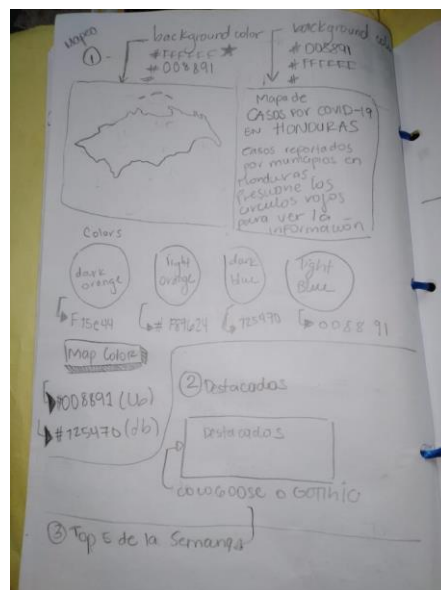 Mapeo
① background color background color
#FFFFFF ★ #008891
#008891 #FFFFFF
#
Mapa de
CASOS POR COVID-19
EN HONDURAS
casos reportados
por municipios en
Honduras
presione los
circulos rojos
para ver la
información
Colors
dark orange light orange dark blue light Blue
F15e44 #F89624 125470 0088 91
Map Color
#008891 (Lb)
#125470 (db)
② Destacados
Destacados
COCOGOOSE o GOTHIC
③ Top 5 de la Semana